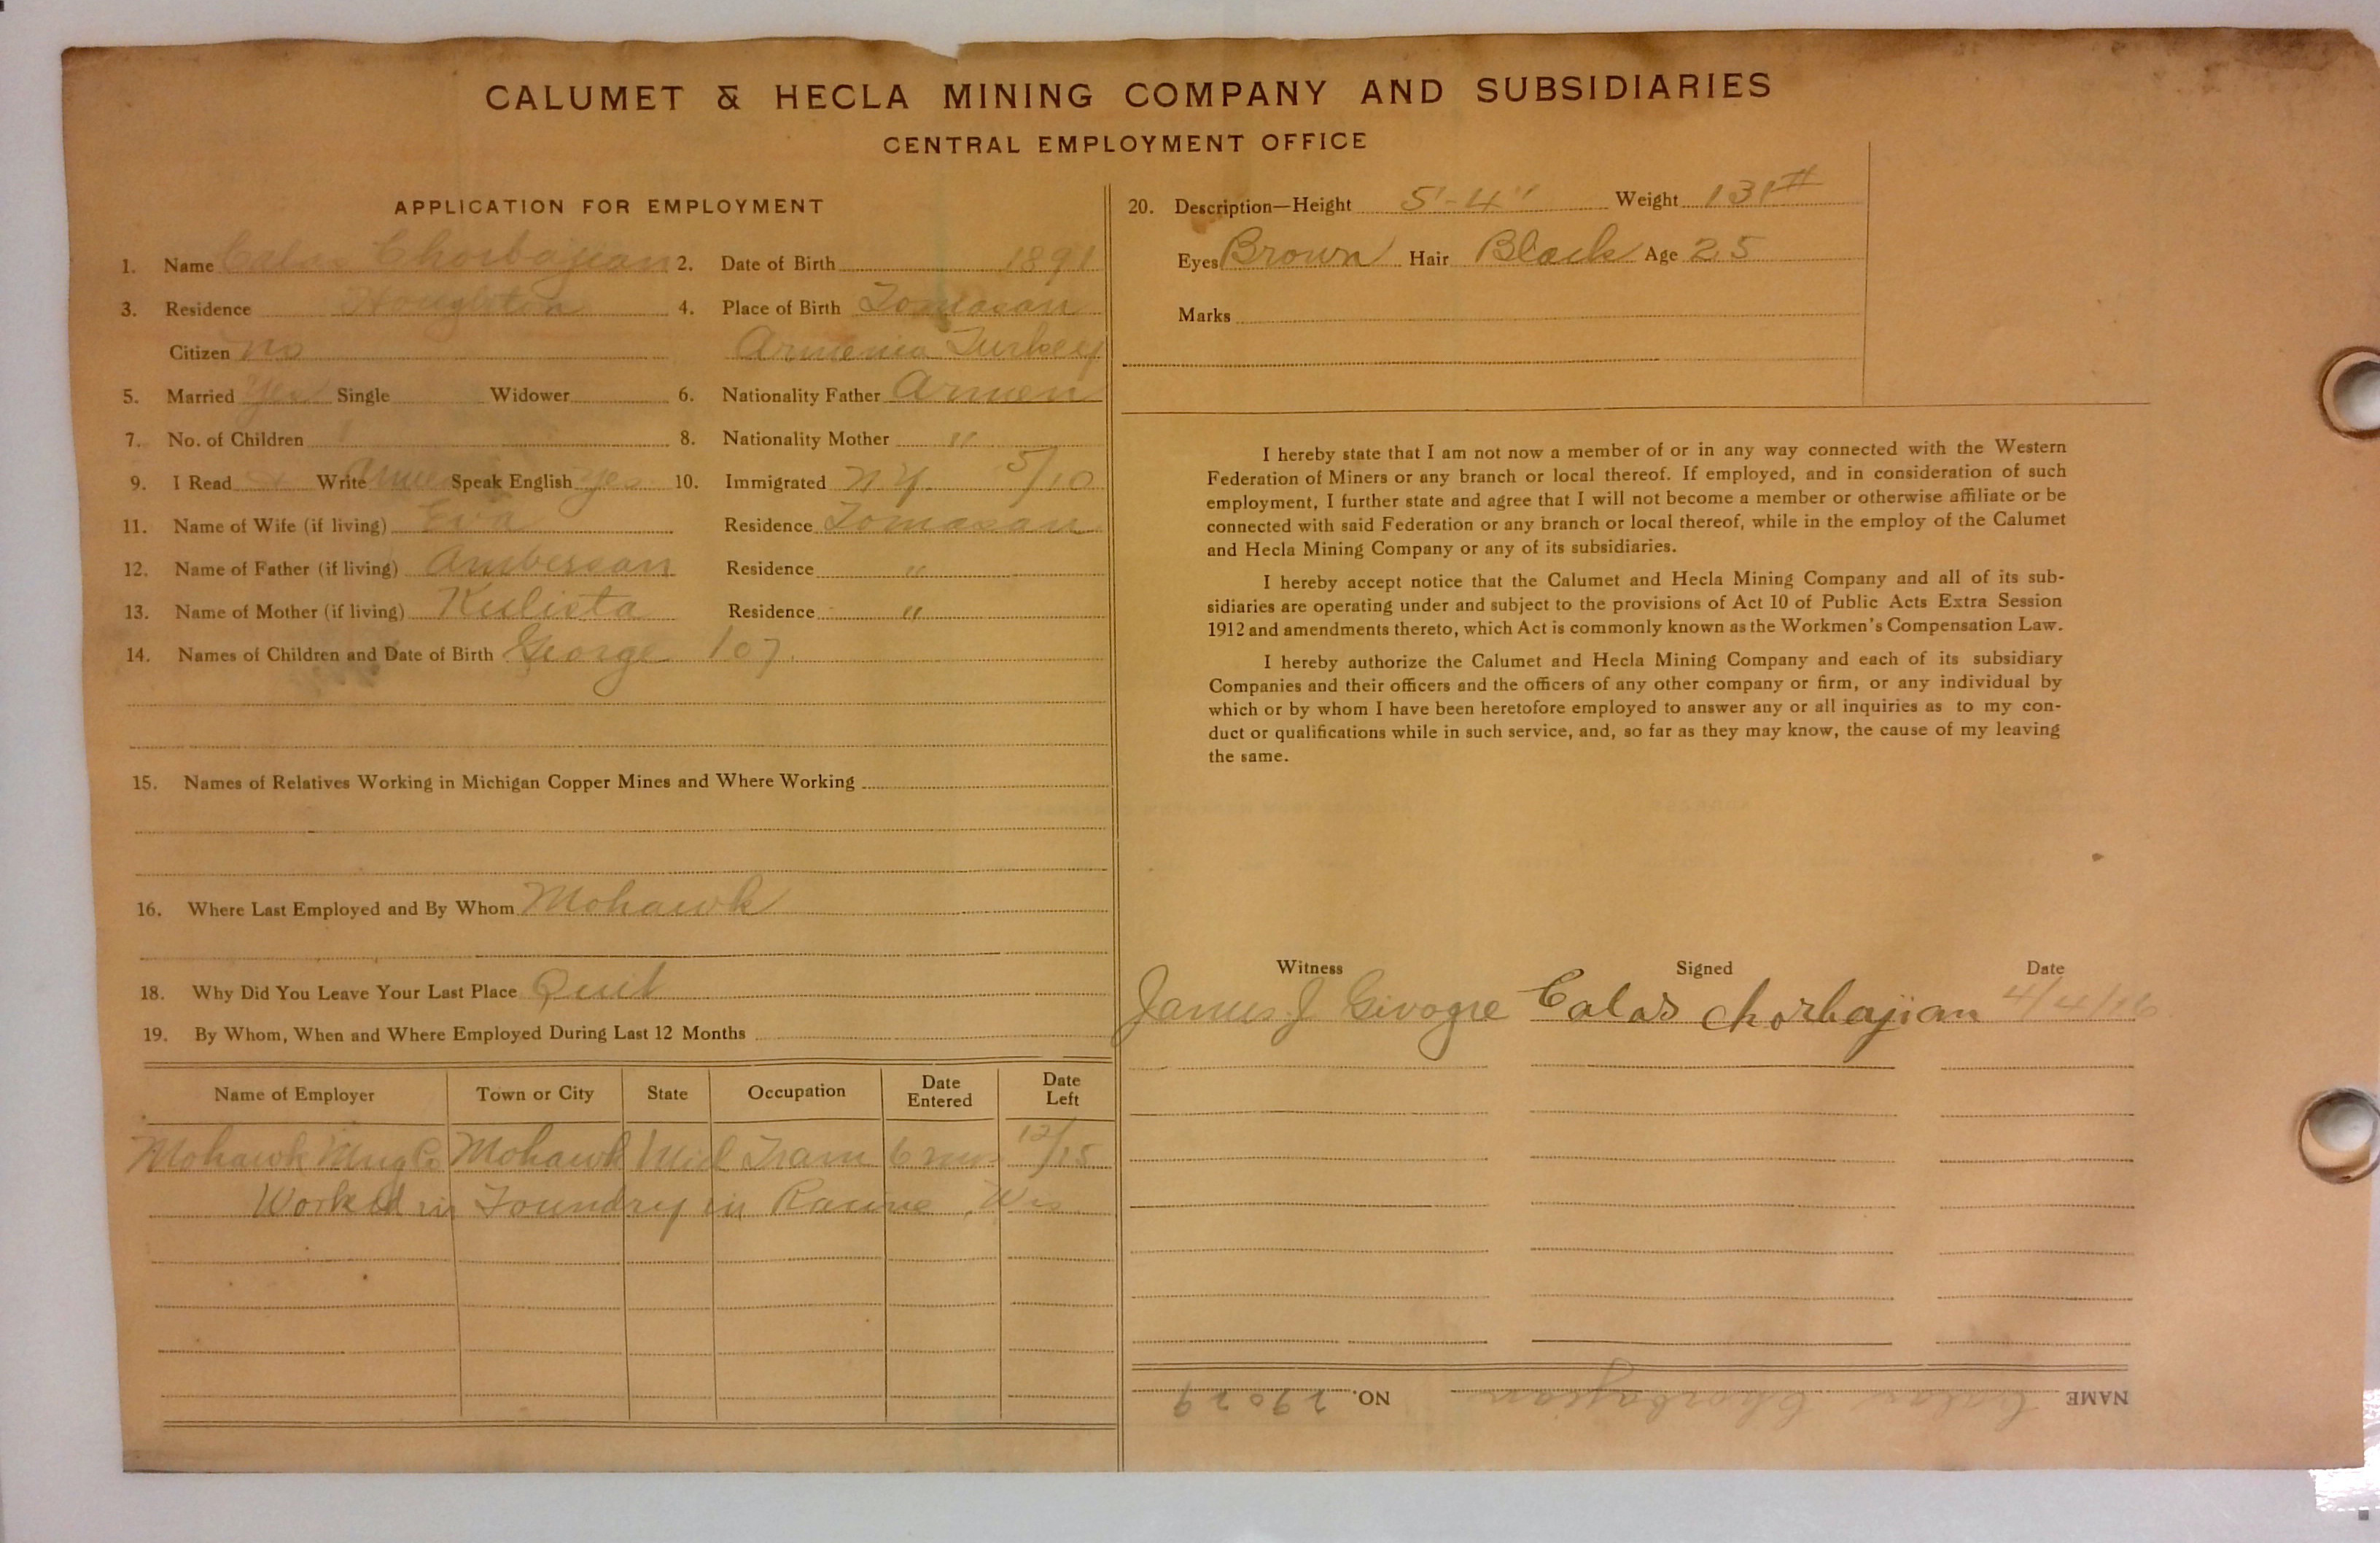 CALUMET & HECLA MINING COMPANY AND SUBSIDIARIES
CENTRAL EMPLOYMENT OFFICE
APPLICATION FOR EMPLOYMENT
1. Name Calos Chorbajian 2. Date of Birth 1891
3. Residence Houghton 4. Place of Birth Tomasan
Citizen no Armenia Turkey
5. Married Yes Single Widower 6. Nationality Father Armen
7. No. of Children 1 8. Nationality Mother "
9. I Read Write Speak English yes 10. Immigrated N.Y. 5/10
11. Name of Wife (if living) Eva Residence Tomasan
12. Name of Father (if living) Residence "
13. Name of Mother (if living) Residence "
14. Names of Children and Date of Birth George 107
15. Names of Relatives Working in Michigan Copper Mines and Where Working
16. Where Last Employed and By Whom Mohawk
18. Why Did You Leave Your Last Place Quit
19. By Whom, When and Where Employed During Last 12 Months
Name of Employer Town or City State Occupation Date Entered Date Left
Mohawk Mng Co Mohawk Mich Tram 6 mos 12/15
Worked in Foundry in Racine, Wis
20. Description—Height 5'-4" Weight 131#
Eyes Brown Hair Black Age 25
Marks
I hereby state that I am not now a member of or in any way connected with the Western
Federation of Miners or any branch or local thereof. If employed, and in consideration of such
employment, I further state and agree that I will not become a member or otherwise affiliate or be
connected with said Federation or any branch or local thereof, while in the employ of the Calumet
and Hecla Mining Company or any of its subsidiaries.
I hereby accept notice that the Calumet and Hecla Mining Company and all of its sub-
sidiaries are operating under and subject to the provisions of Act 10 of Public Acts Extra Session
1912 and amendments thereto, which Act is commonly known as the Workmen's Compensation Law.
I hereby authorize the Calumet and Hecla Mining Company and each of its subsidiary
Companies and their officers and the officers of any other company or firm, or any individual by
which or by whom I have been heretofore employed to answer any or all inquiries as to my con-
duct or qualifications while in such service, and, so far as they may know, the cause of my leaving
the same.
Witness Signed Date
James J Givogre Calos Chorbajian 4/4/16
NAME Calos Chorbajian NO. 29029